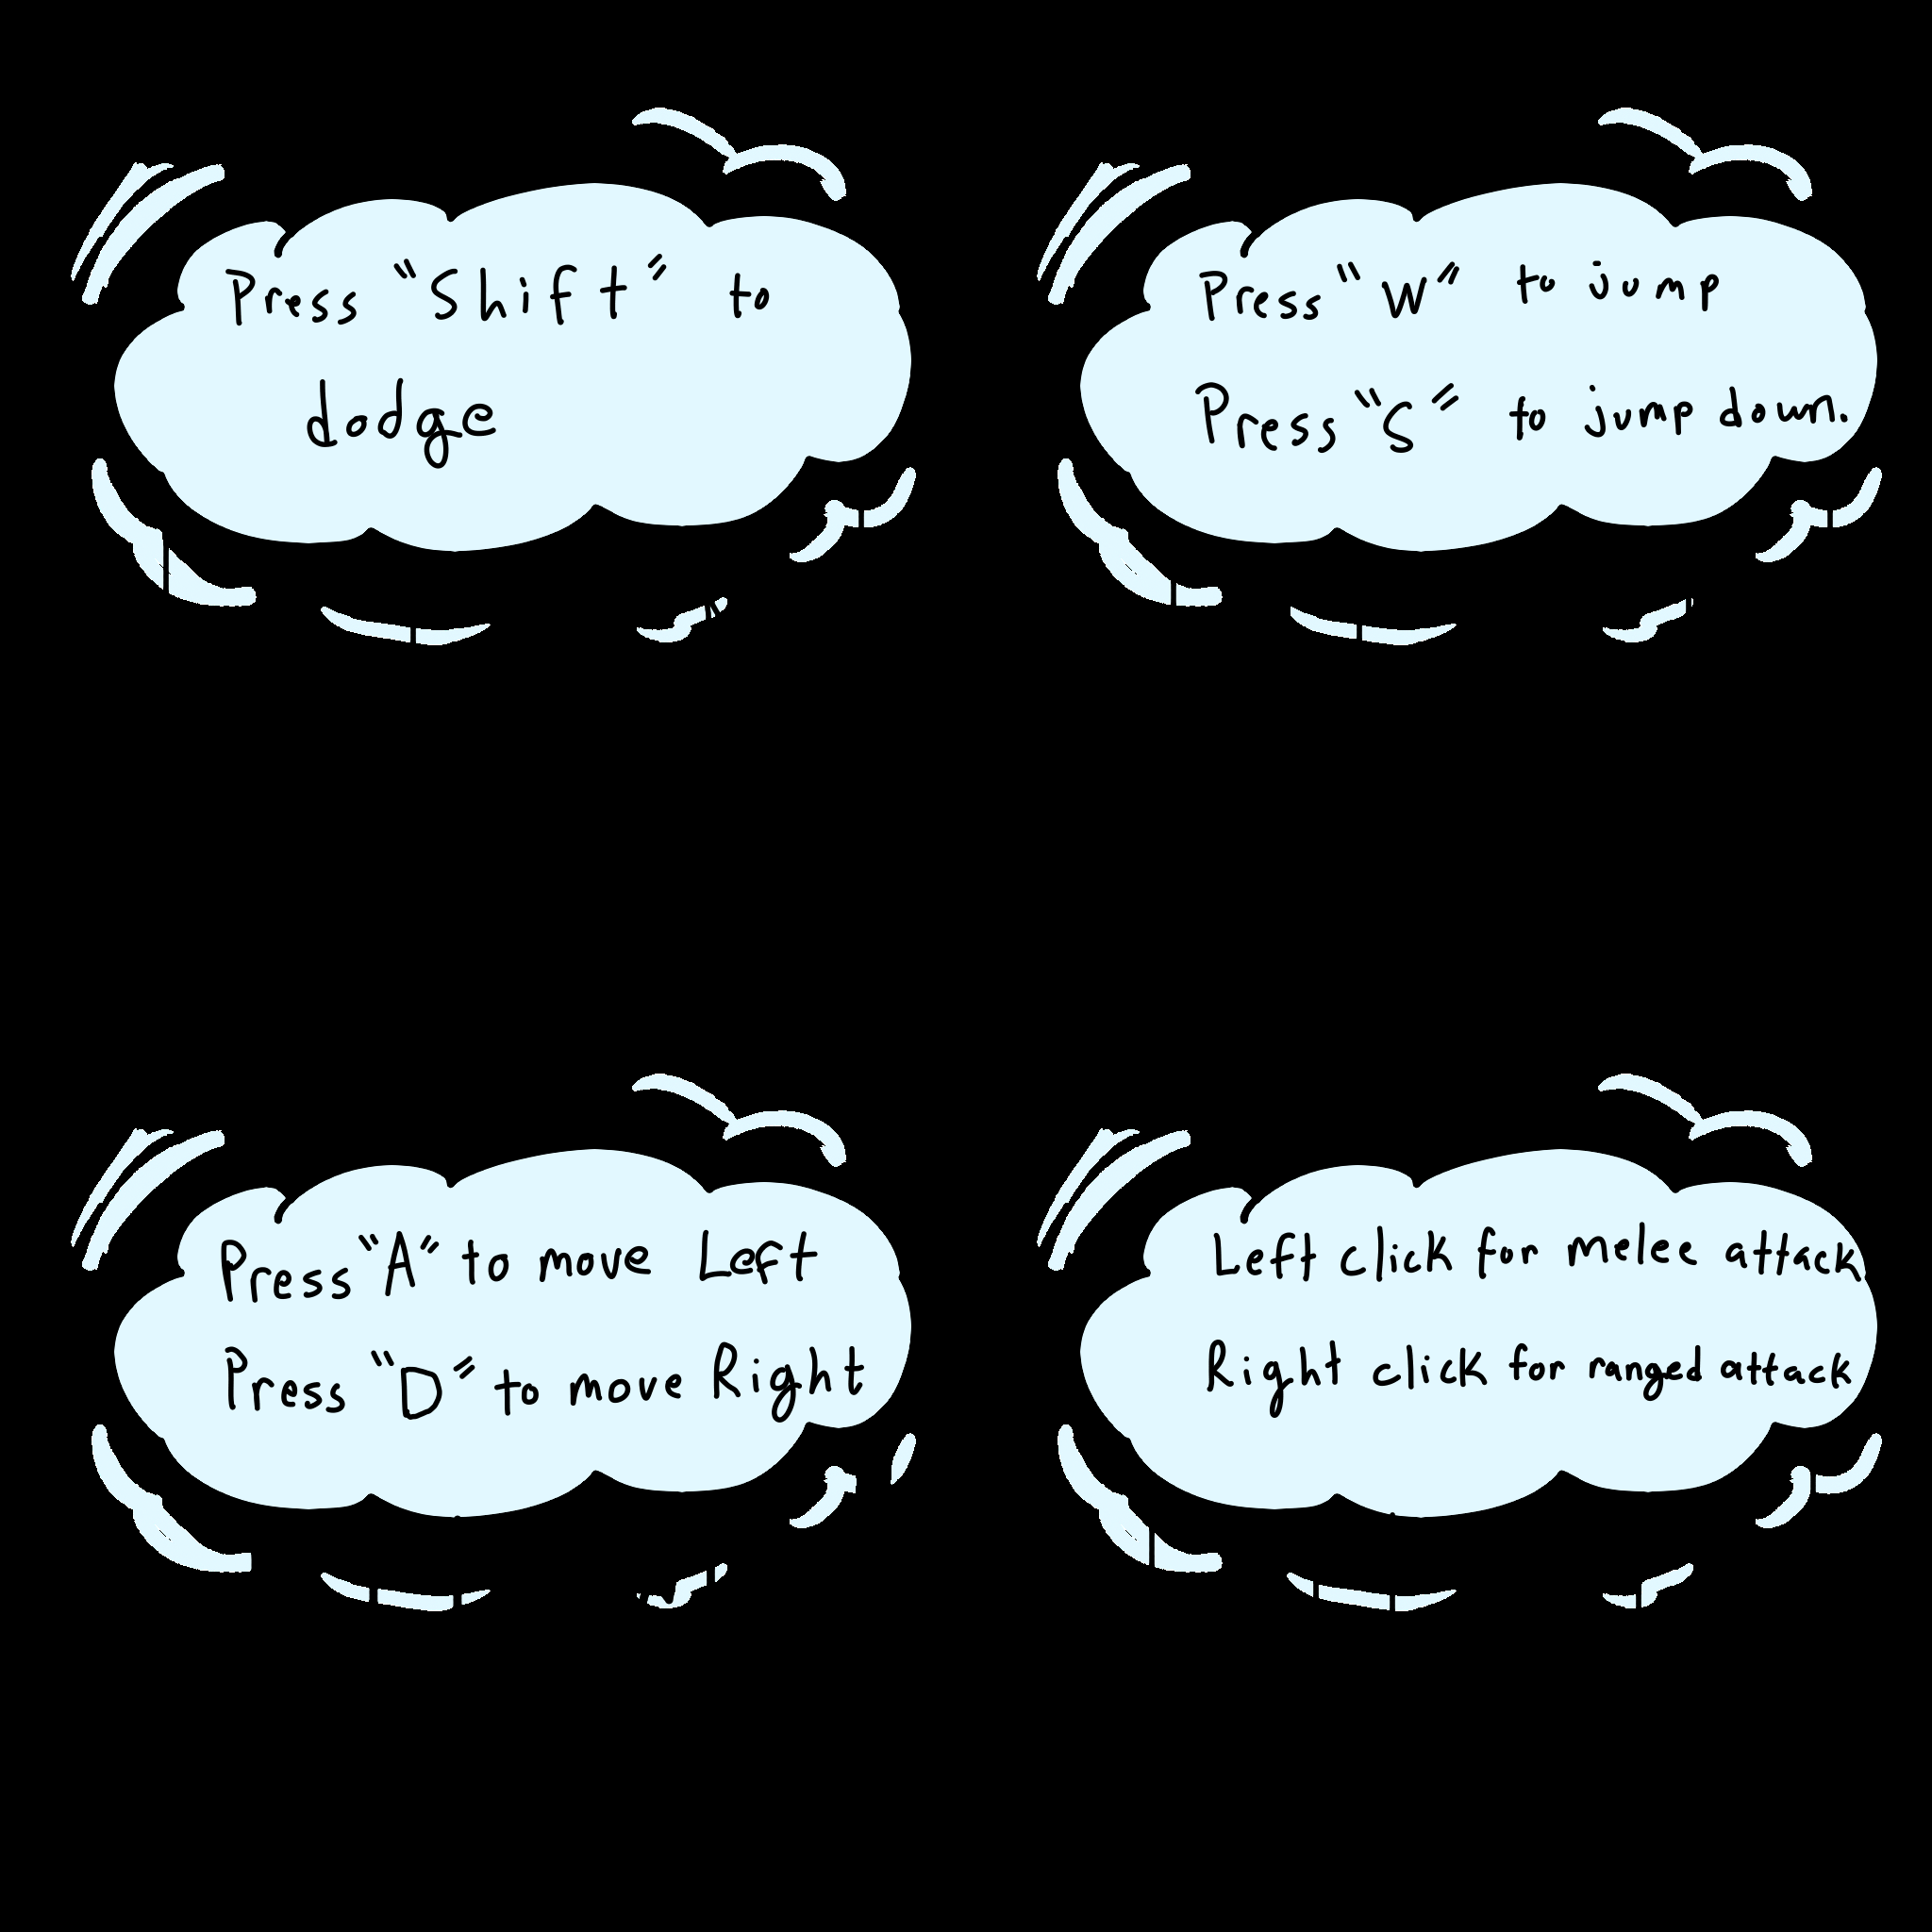 Press "Shift" to
dodge
Press "W" to jump
Press "S" to jump down.
Press "A" to move Left
Press "D" to move Right
Left click for melee attack
Right click for ranged attack